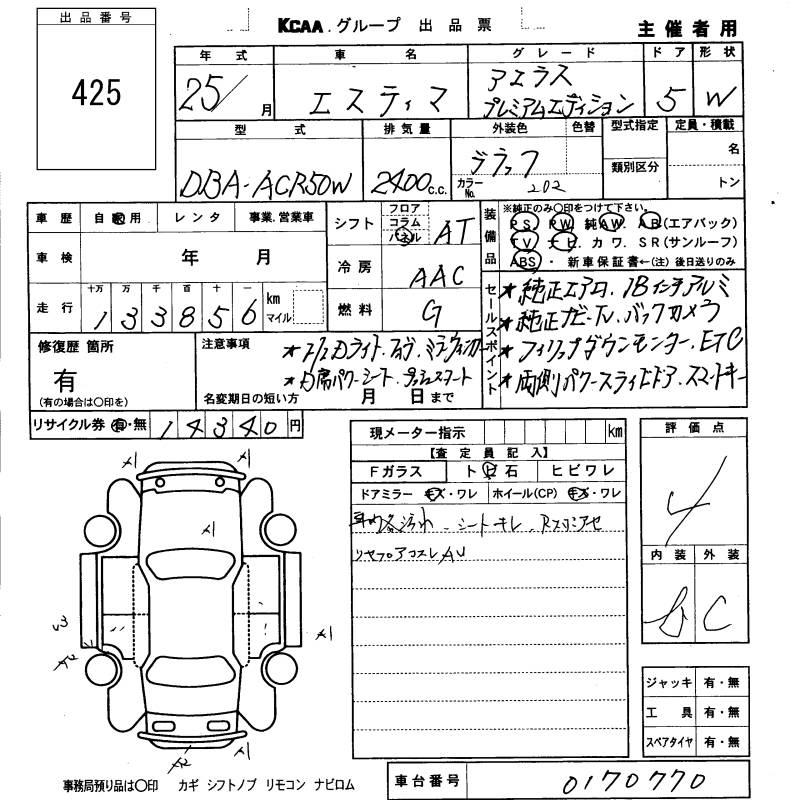 出品番号
425
KCAA.グループ 出品票
主催者用
年式 車名 グレード ドア 形状
25/月 エスティマ アエラス プレミアムエディション 5 W
型式 排気量 外装色 色替 型式指定 定員・積載
DBA-ACR50W 2400c.c. ブラック
名
類別区分
カラーNo. 202
トン
車歴 自家用 レンタ 事業、営業車
車検 年 月
走行 十万 万 千 百 十 一
133856 km マイル
シフト フロア コラム パネル AT
冷房 AAC
燃料 G
装備品 ※純正のみ〇印をつけて下さい。
PS. PW. 純AW. AB(エアバック)
TV. ナビ. カワ. SR(サンルーフ)
ABS・ 新車保証書←(注)後日送りのみ
セールスポイント
★純正エアロ.18インチアルミ
★純正ナビ.TV.バックカメラ
★フィリップダウンモニター.ETC
★両側パワースライドドア.スマートキー
修復歴 箇所
有
(有の場合は〇印を)
注意事項
ライト ミラーウィンカー
席パワーシート プッシュスタート
名変期日の短い方 月 日まで
リサイクル券 有・無 14340円
現メーター指示 km
【査定員記入】
Fガラス トビ石 ヒビワレ
ドアミラー キズ・ワレ ホイール(CP) キズ・ワレ
シートキレ
評価点
4
内装 外装
C
A1 A1
A1
A1
A1
ジャッキ 有・無
工具 有・無
スペアタイヤ 有・無
事務局預り品は〇印 カギ シフトノブ リモコン ナビロム
車台番号 0170770